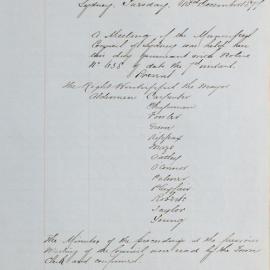 Sydney, Tuesday,
A Meeting of the Municipal
Council of Sydney was held here
this day pursuant with Notice
No 638 of date the 7th instant.
Present
The Right Worshipful the Mayor
Aldermen Carpenter
Chapman
Fowler
Green
Hart
O'Connor
Palmer
Playfair
Roberts
Taylor
Young
The Minutes of the proceedings at the previous
Meeting of the Council were read by the Town
Clerk and confirmed.